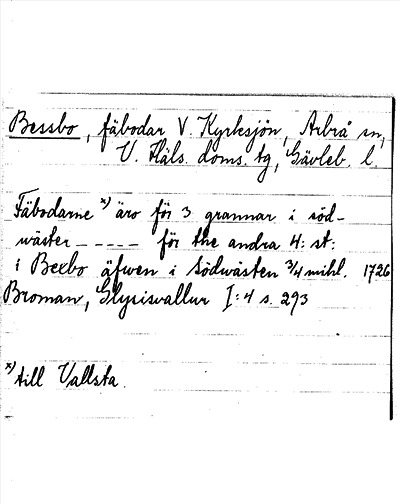 Bessbo, fäbodar V. Kyrksjön, Arbrå sn,
V. Häls. doms. tg, Gävleb. l.
Fäbodarne x) äro för 3 grannar i söd-
wäster _ _ _ _ _ för the andra 4: st:
i Bexbo äfwen i Södwästen 3/4 mihl. 1726
Broman, Glysisvallur I:4 s. 293
x) till Vallsta.